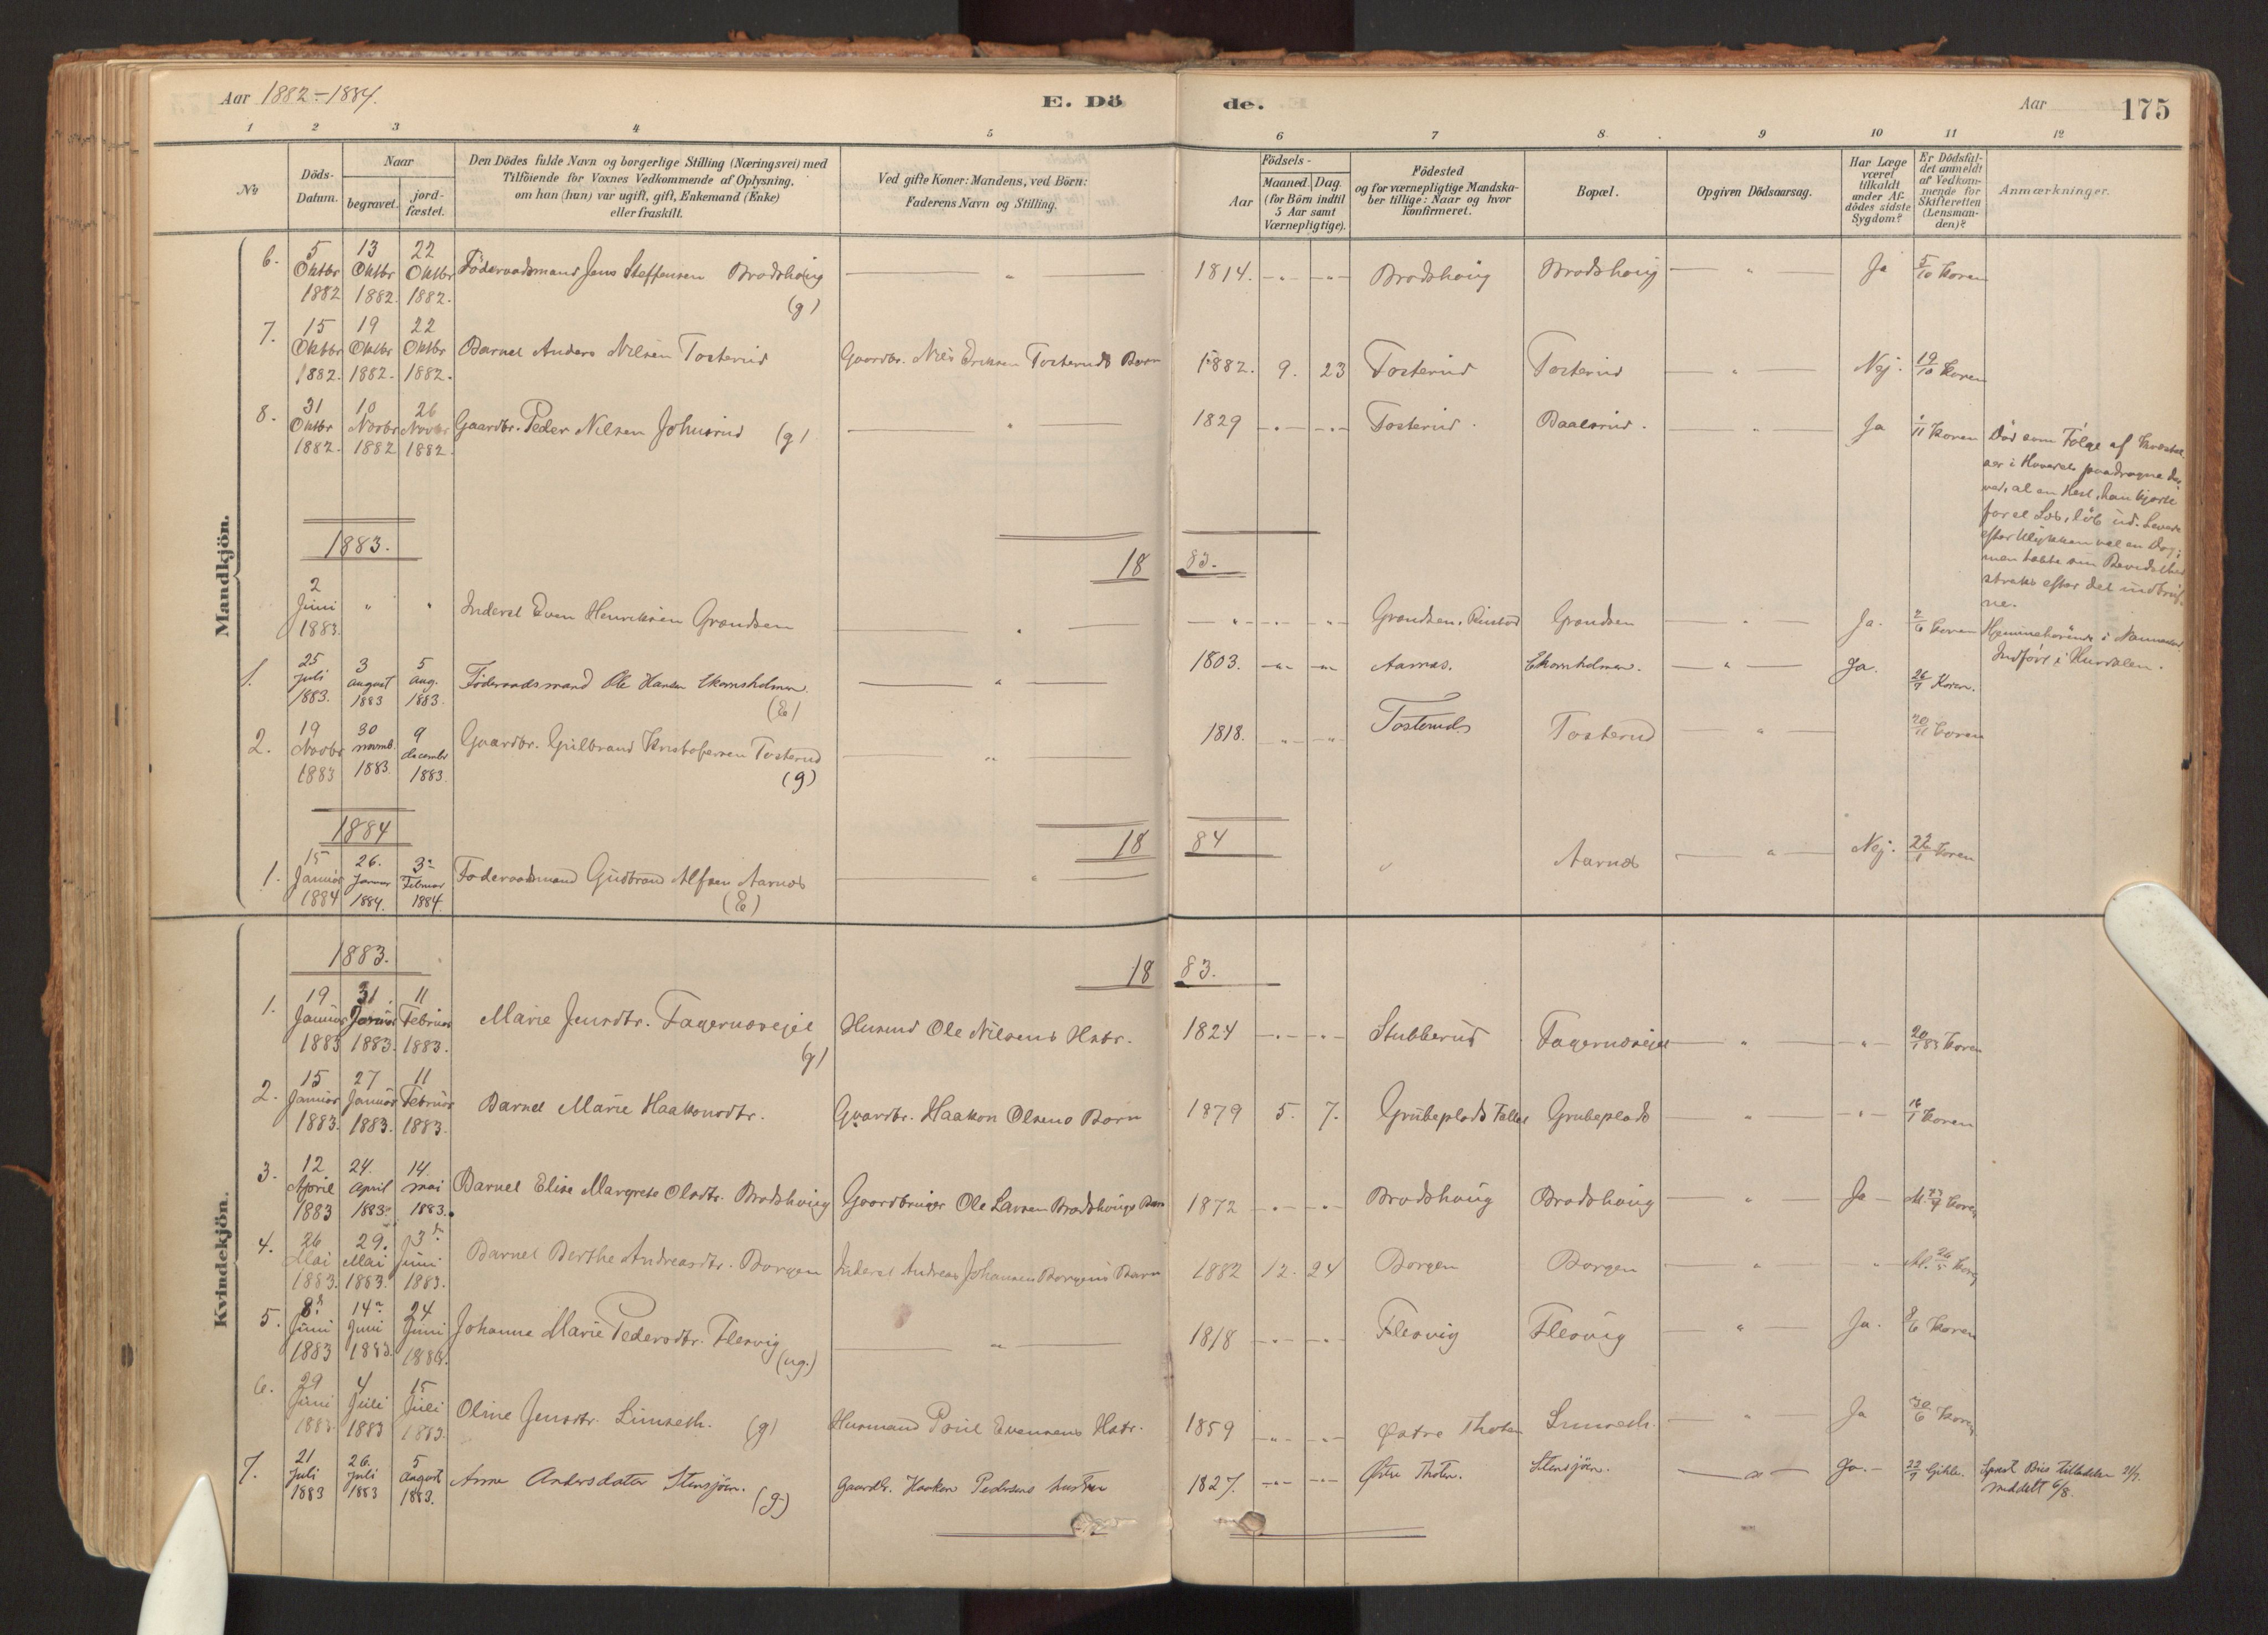 Aar 1882-1884.
E. Dö de.
Aar 175
1 2 3 4 5 6 7 8. 9 10 11 12
No
Döds-
Datum.
Naar
begravet.
jord-
fæstet.
Den Dödes fulde Navn og borgerlige Stilling (Næringsvei) med
Tilföiende for Voxnes Vedkommende af Oplysning,
om han (hun) var ugift, gift, Enkemand (Enke)
eller fraskilt.
Ved gifte Koner: Mandens, ved Börn:
Faderens Navn og Stilling.
Födsels-
Aar
Maaned. Dag.
(for Börn indtil
5 Aar samt
Værnepligtige).
Födested
og for værnepligtige Mandska-
ber tillige: Naar og hvor
konfirmeret.
Bopæl.
Opgiven Dödsaarsag.
Har Læge
været
tilkaldt
under Af-
dödes sidste
Sygdom?
Er Dödsfal-
det anmeldt
af Vedkom-
mende for
Skifteretten
(Lensman-
den)?
Anmærkninger.
Mandkjön.
6. 5 13 22
Oktbr Oktbr Oktbr Föderaadsmand Jens Steffensen Brodshaug — " — 1814. -"- -"- Brodshaug Brodshaug — " — Ja 5/10 Koren
1882 1882. 1882.
(g)
7. 15 19 22
Oktbr Oktbr Oktbr Barnet Anders Nilsen Tosterud Gaardbr. Nils Eriksen Tosteruds Barn 1882. 9. 23 Tosterud Tosterud — " — Nej. 19/10 Koren
1882. 1882. 1882.
8. 31 10 26
Oktbr Novbr Novbr Gaardbr. Peder Nilsen Johnsrud (g) — " — 1829 -"- -"- Tosterud. Baalsrud. — " — Ja 1/11 Koren
1882. 1882 1882.
Död som Fölge af
i Hovedet paadragne der-
ved, at en Hest, han kjørte
for et Læs, löb ud. Levede
efter Ulykken vel en Dag;
men tabte sin Bevidsthed
straks efter det indtruf-
ne.
1883.
18 83.
2
Juni " " Inderst Even Henriksen Grandsen — " — -"- -"- -"- Grandsen, Grandsen — " — Ja. 2/6 Koren Hjemmehörende i Nannestad
1883.
Indfört i Hurdalen.
1. 25 3 5
Juli August Aug. Föderaadsmand Ole Hansen Ekornsholmen. — " — 1803. -"- -"- Aarnæs. Ekornholmen. — " — Ja. 26/7 Koren.
1883. 1883 1883.
(E)
2. 19 30 9
Novbr novmb. decembr Gaardbr. Gulbrand Kristofersen Tosterud — " — 1818. -"- -"- Tosterud Tosterud — " — 20/11 Koren
1883 1883. 1883.
(g)
1884
18 84
1. 15 26. 3
Januar Januar Februar Föderaadsmand Gudbrand Alfsen Aarnæs — " — " Aarnæs — " — Nej. 22/1 Koren
1884 1884. 1884.
(E)
Kvindekjön.
1883.
18 83.
1. 19 31. 11
Januar Januar Februar Marie Jensdtr. Fagernesvejet Husmd Ole Nilsens Hstr. 1824 -"- -"- Stubberud Fagernesvejet — " — -"- 20/1 83 Koren
1883 1883. 1883.
(g)
2. 15 27 11
Januar Januar Februar Barnet Marie Haakonsdtr. Gaardbr. Haakon Olsens Barn 1879 5. 7. Grubeplads Grubeplads — " — -"- 16/1 Koren
1883. 1883. 1883.
3. 12 24. 14.
April April mai Barnet Elise Margrete Olsdtr. Brodshaug Gaardbruger Ole Larsen Brodshaugs Barn 1872 -"- -"- Brodshaug Brodshaug — " — Ja - Koren
1883 1883. 1883.
4. 26 29. 3
Mai Mai Juni Barnet Berthe Andreasdtr. Borgen Inderst Andreas Johansen Borgens Barn 1882 12. 24 Borgen Borgen — " — " 26/5 Koren
1883. 1883. 1883.
5. 8 14 24
Juni Juni Juni Johanne Marie Pedersdtr. Flesvig — " — 1818 -"- -"- Flesvig Flesvig — " — Ja. 9/6 Koren
1883 1883. 1883.
(ug.)
6. 29 4 15
Juni Juli Juli Oline Jensdtr. Limseth. (g) Husmand Poul Evensens Hstr. 1859 -"- -"- Østre Thoten Limseth. — " — Ja 30/6 Koren
1883. 1883 1883.
7. 21 26. 5
Juli Juli August Anne Andersdater Stensjøen. Gaardbr. Haakon Pedersens hustru 1827. -"- -"- Østre Thoten. Stensjøen. — " — Ja. - 22/7 Gihle.
1883 1883 1883.
(g)
meddelt 6/8.